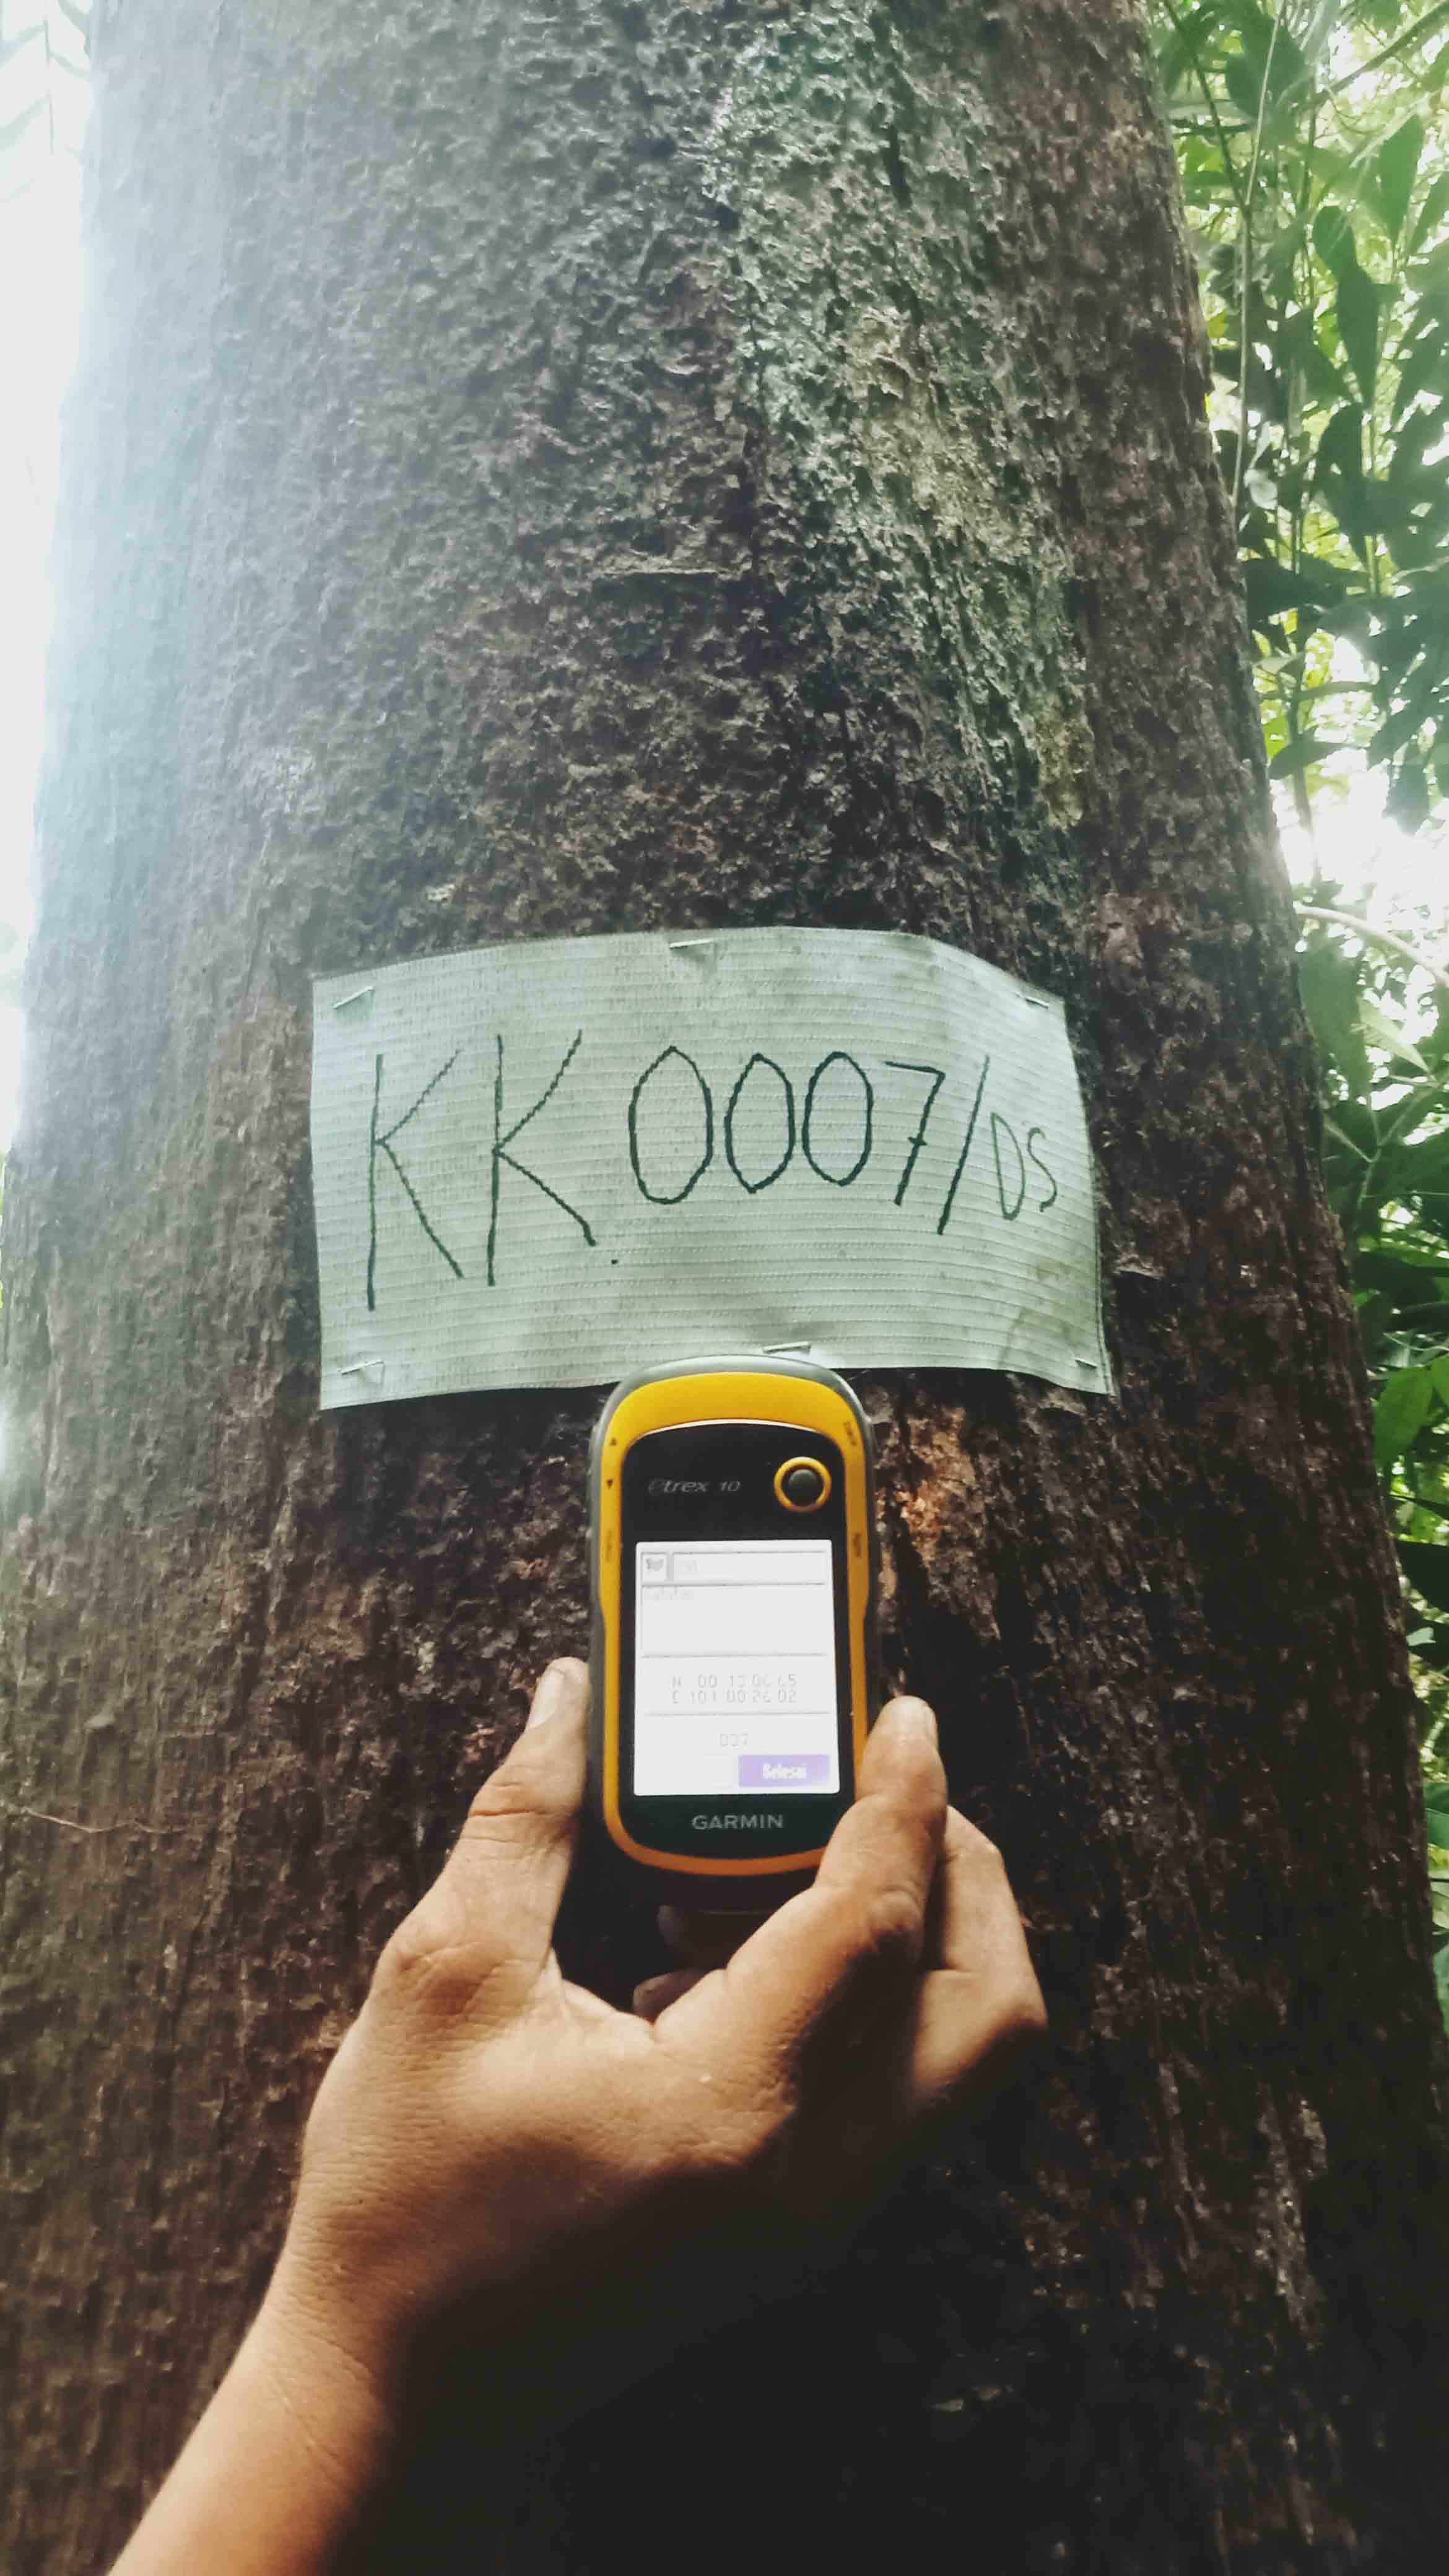 KK 0007/DS
etrex 10
N 00 13 06.65
E 101 00 26.02
037
Selesai
GARMIN